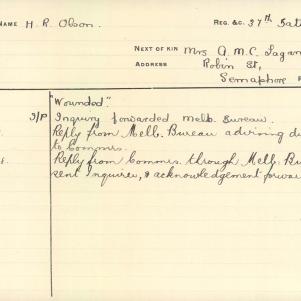 NAME H. R. Olson. REG. &C. 37th Batt
NEXT OF KIN Mrs A.M.C. Lagan
ADDRESS Robin St,
Semaphore
"Wounded".
I/P Inquiry forwarded Melb. Bureau.
Reply from Melb. Bureau advising di
to Commrs.
Reply from Commrs. through Melb. Bu
sent Inquirer, & acknowledgement forwa